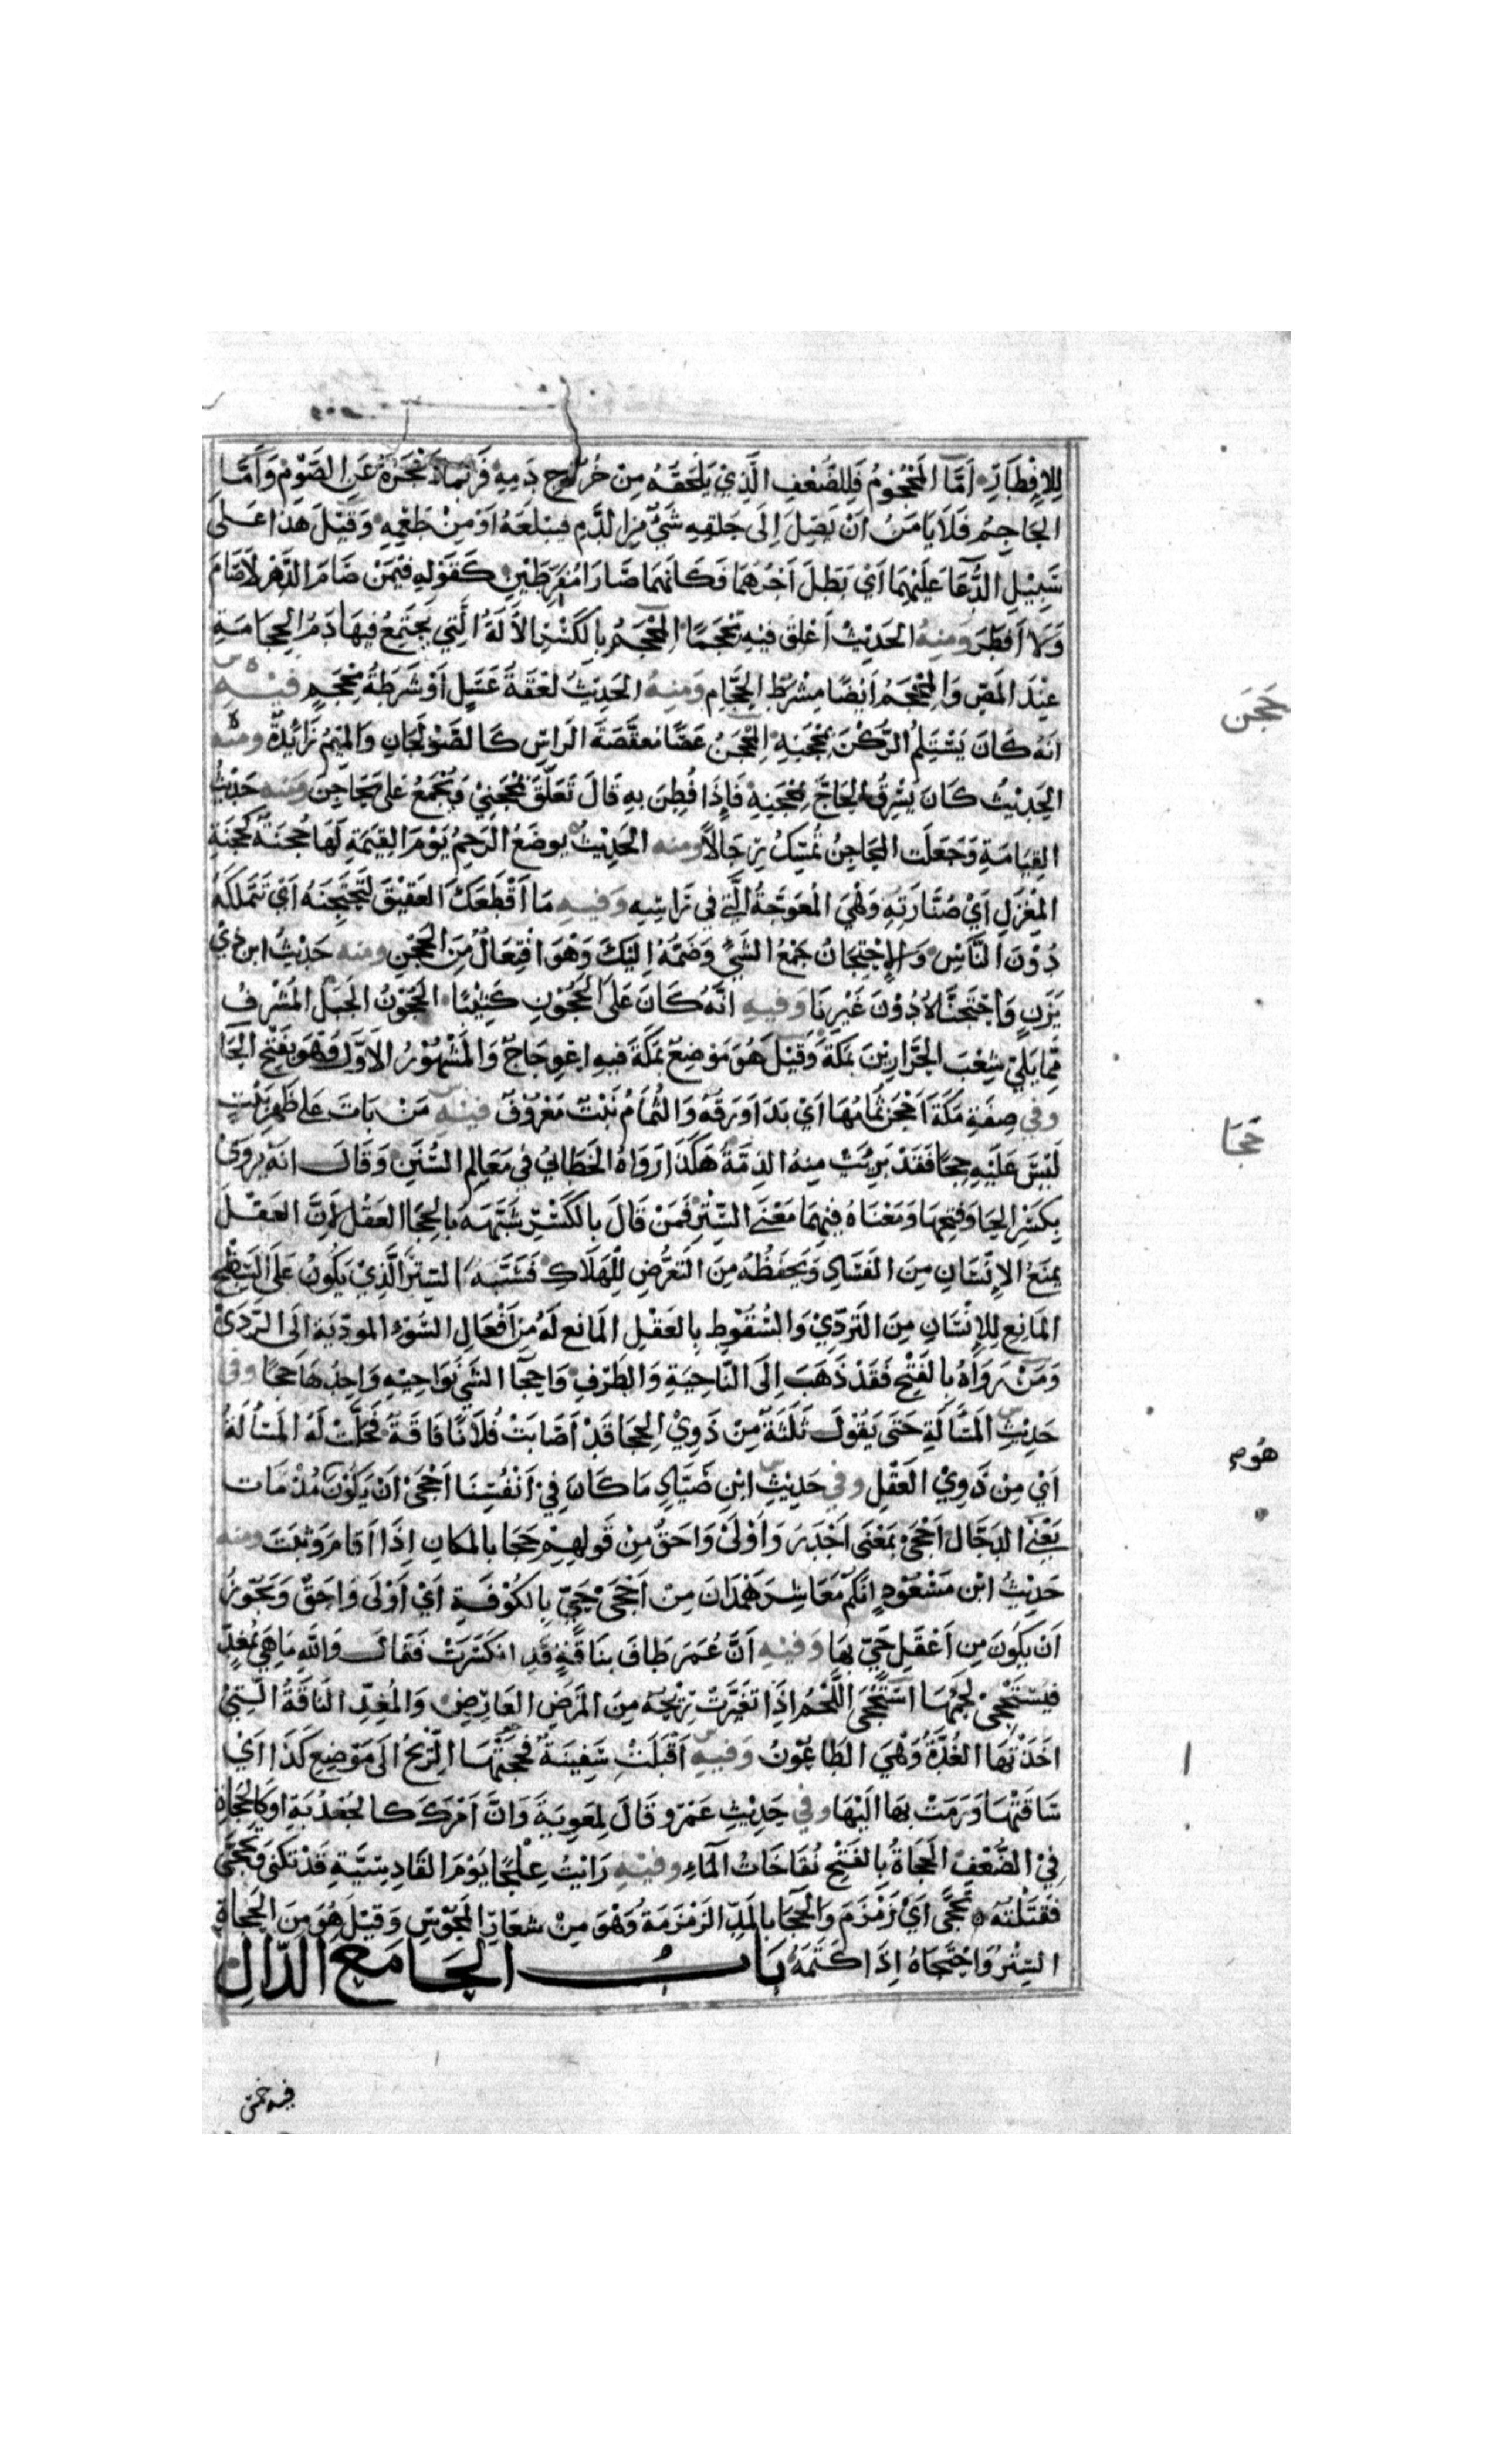 لِلإِفْطَارِ أَمَّا الْمَحْجُوْمُ فَلِلضُّعْفِ الَّذِيْ يَلْحَقُهُ مِنْ خُرُوْجِ دَمِهِ فَرُبَمَا أَعْجَزَهُ عَنِ الصَّوْمِ وَأَمَّا
الحَاجِمُ فَلَا يَامَنُ اَنْ يَصِلَ اِلَى حَلْقِهِ شَيٌْ مِنَ الدَّمِ فيبْلَعَهُ اَوْ مِنْ طَعْمِهِ وَقِيْلَ هَذَا عَلَى
سَبِيْلِ الدُّعَا عَلَيْهِمَا اَيْ بَطَلَ اَجْرُهُمَا فَكَانَّهُمَا صَارَا مُفْطِرَيْنِ كَقَوْلِهِ فِيْمَنْ صَامَ الدَّهْرَ لَا صَامَ
وَلَا اَفْطَرَ وَمِنْهُ الْحَدِيْثُ اَعْلَقَ فِيْهِ مِحْجَمًا الْمِحْجَمُ بِالْكَسْرِ الْآلَةُ الَّتِي يَجْتَمِعُ فِيهَا دَمُ الحِجَامَةِ
عِنْدَ المَصِّ وَالْمِحْجَمُ اَيْضًا مِشْرَطُ الحَجَّامِ وَمِنْهُ الحَدِيْثُ لَعْقَةَ عَسَلٍ اَوْ شَرْطَةُ مِحْجَمٍ فِيْهِ
حَجَنَ
انَّهُ كَانَ يَسْتَلِمُ الرُّكْنَ بِمِحْجَنِهِ الْمِحْجَنُ عَصًا مُعَقَّفَةَ الرَاسِ كَالصَّوْلَجَانِ وَالْمِيْمُ زَائِدَةٌ وَمِنْهُ
الحَدِيْثُ كَانَ يَسْرِقُ الحَاجَّ بِمِحْجَنِهِ فَاِذَا فُطِنَ بِهِ قَالَ تَعَلَّقَ بِمِحْجَنِيْ وَيُجْمَعُ عَلَى مَحَاجِنَ وَمِنْهُ حَدِيْثُ
القِيَامَةِ وَجَعَلَتِ المَحَاجِنُ تُمْسِكُ رِجَالًا وَمِنْهُ الحَدِيْثُ يُوضَعُ الرَحِمُ يَوْمَ القِيَمَةِ لَهَا حُجْنَةٌ كَحُجْنَةِ
المِغْزَلِ اَيْ صُنَّارَتِهِ وَهْيَ المُعْوَجَّةُ الَّتِيْ فِي رَاسِهِ وَفِيهِ مَا اَقْطَعَكَ العَقِيْقَ لِتَحْتَجِنَهُ اَيْ تَتَمَلَّكَهُ
دُوْنَ النَّاسِ وَالاِحْتِجَانُ جَمْعُ الشَيْءِ وَضَمُّهُ اِلَيْكَ وَهْوَ افْتِعَالٌ مِنَ الحَجْنِ وَمِنْهُ حَدِيْثُ ابْنِ ذِيْ
يَزَنٍ وَاحْتَجَنَّاهُ دُوْنَ غَيْرِنَا وَفِيهِ انَّهُ كَانَ عَلَى الْحَجُوْنِ كَئِيْبًا الحَجُوْنُ الجَبَلُ المُشْرِفُ
مِمَّا يَلِيْ شِعْبَ الجَزَّارِيْنَ بِمَكَّةَ وَقِيْلَ هُوَ مَوْضِعٌ بِمَكَّةَ فِيهِ اعْوِجَاجٌ وَالمَشْهُوْرُ الاَوَّلُ وَهْوَ بِفَتْحِ الحَا
وَفِي صِفَةِ مَكَّةَ اَحْجَنَ ثُمَامُهَا اَيْ بَدَا وَرَقُهُ وَالثُّمَامُ نَبْتٌ مَعْرُوْفٌ فِيْهِ مَنْ بَاتَ عَلَى ظَهْرِ بَيْتٍ
حَجَا
لَيْسَ عَلَيْهِ حِجًا فَقَدْ بَرِئَتْ مِنْهُ الذِمَّةُ هَكَذَا رَوَاهُ الخَطَّابِيُ فِي مَعَالِمِ السُّنَنِ وَقَالَ انَّهُ يُرْوَى
بِكَسْرِ الحَا وَفَتْحِهَا وَمَعْنَاهُ فِيْهِمَا مَعْنَى السِّتْرِ فَمَنْ قَالَ بِالكَسْرِ شَبَّهَهُ بِالحِجَا العَقْلِ لِاَنَّ العَقْلَ
يَمْنَعُ الاِنْسَانَ مِنَ الفَسَادِ وَيَحْفَظُهُ مِنَ التَعَرُّضِ لِلْهَلَاكِ فَشَبَّهَ السِتْرَ الَّذِيْ يَكُونُ عَلَى السَّطْحِ
المَانِعِ لِلاِنْسَانِ مِنَ التَّرَدِّيْ وَالسُّقُوْطِ بِالعَقْلِ المَانِعِ لَهُ مِنْ اَفْعَالِ السُّوْءِ المُودِّيَةِ اِلَى الرَّدَى
وَمَنْ رَوَاهُ بِالفَتْحِ فَقَدْ ذَهَبَ اِلَى النَّاحِيَةِ وَالطَّرَفِ وَاحْجَا الشَيْءِ نَوَاحِيْهِ وَاحِدُهَا حَجًا وَفِي
حَدِيْثِ المَسْاَلَةِ حَتَى يَقُوْلَ ثَلَثَةٌ مِنْ ذَوِيْ الحِجَا قَدْ اَصَابَتْ فُلَانًا فَاقَةٌ فَحَلَّتْ لَهُ المَسْاَلَةُ
اَيْ مِنْ ذَوِيْ العَقْلِ وَفِي حَدِيْثِ ابْنِ صَيَّادٍ مَا كَانَ فِيْ اَنْفُسِنَا اَحْجَى اَنْ يَكُوْنَ هُوَ مُذْ مَاتَ
هُو م
يَعْنِيْ الدَجَّالَ اَحْجَى بِمَعْنَى اَجْدَرُ وَاَوْلَى وَاَحَقُّ مِنْ قَولِهِمْ حَجَا بِالمَكَانِ اِذَا اَقَامَ وَثَبَتَ وَمِنْهُ
حَدِيْثُ ابْنِ مَسْعُوْدٍ اِنَّكُمْ مَعَاشِرَ هَمْدَانَ مِنْ اَحْجَى حَيٍّ بِالكُوْفَةِ اَيْ اَوْلَى وَاَحَقُّ وَيَجُوْزُ
اَنْ يَكُوْنَ مِنْ اَعْقَلِ حَيٍّ بِهَا وَفِيْهِ اَنَّ عُمَرَ طَافَ بِنَاقَةٍ قَدِ انْكَسَرَتْ فَقَالَ وَاللّٰهِ مَا هِيَ بِمُغِدٍّ
فَيَسْتَحْجِيْ لَحْمُهَا اسْتَحْجَى اللَّحْمُ اِذَا تَغَيَّرَتْ رِيْحُهُ مِنَ المَرَضِ العَارِضِ وَالمُغِدُّ النَاقَةُ الَّتِيْ
اَخَذَتْهَا الغُدَّةُ وَهْيَ الطَاعُوْنُ وَفِيهِ اَقْبَلَتْ سَفِيْنَةٌ فَحَجَتْهَا الرِّيْحُ اِلَى مَوْضِعِ كَذَا اَيْ
سَاقَتْهَا وَرَمَتْ بِهَا اِلَيْهَا وَفِي حَدِيْثِ عَمْرٍو قَالَ لِمُعَوِيَةَ وَاِنَّ اَمْرَكَ كَالجُعْدُبَةِ اوْ كَالحَجَاةِ
فِيْ الضُّعْفِ الحَجَاةُ بِالفَتْحِ نُفَاخَاتُ المَاءِ وَفِيْهِ رَاَيْتُ عِلْجًا يَوْمَ القَادِسِيَّةِ قَدْ تَكَنَّى وَتَحَجَّى
فَقَتَلْتُهُ تَحَجَّى اَيْ زَمْزَمَ وَالحِجَا بِالمَدِّ الزَمْزَمَةُ وَهْوَ مِنْ شِعَارِ المَجُوْسِ وَقِيْلَ هُوَ مِنَ الحَجَاةِ
السِتْرُ وَاحْتَجَاهُ اِذَا كَتَمَهُ بَابُ الحَا مَعَ الدَّالِ
فيه خمس